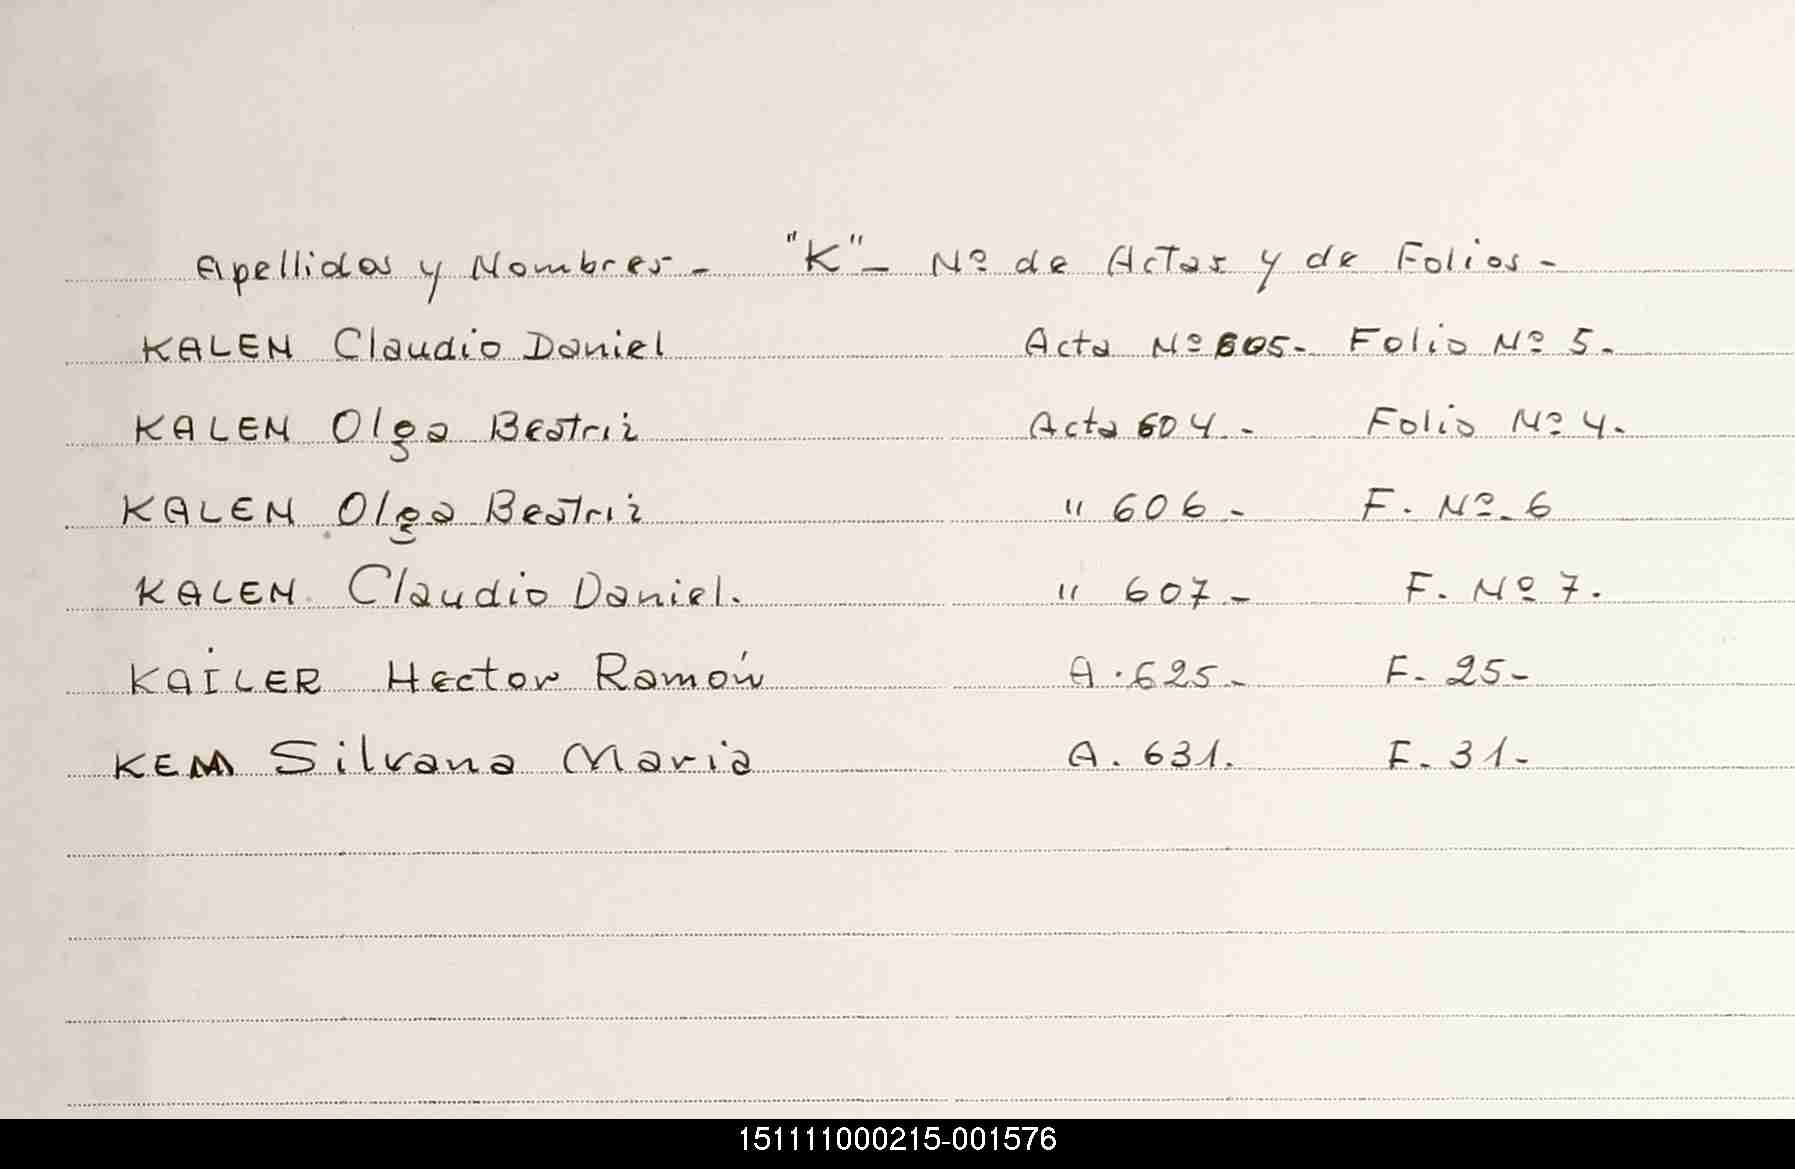 Apellidos y Nombres - "K" - Nº de Actas y de Folios -
KALEN Claudio Daniel Acta Nº 605 - Folio Nº 5.
KALEN Olga Beatriz Acta 604 - Folio Nº 4.
KALEN Olga Beatriz " 606 - F. Nº 6
KALEN Claudio Daniel. " 607 - F. Nº 7.
KAILER Hector Ramón A. 625 - F. 25 -
KEM Silvana Maria A. 631. F. 31 -
151111000215-001576